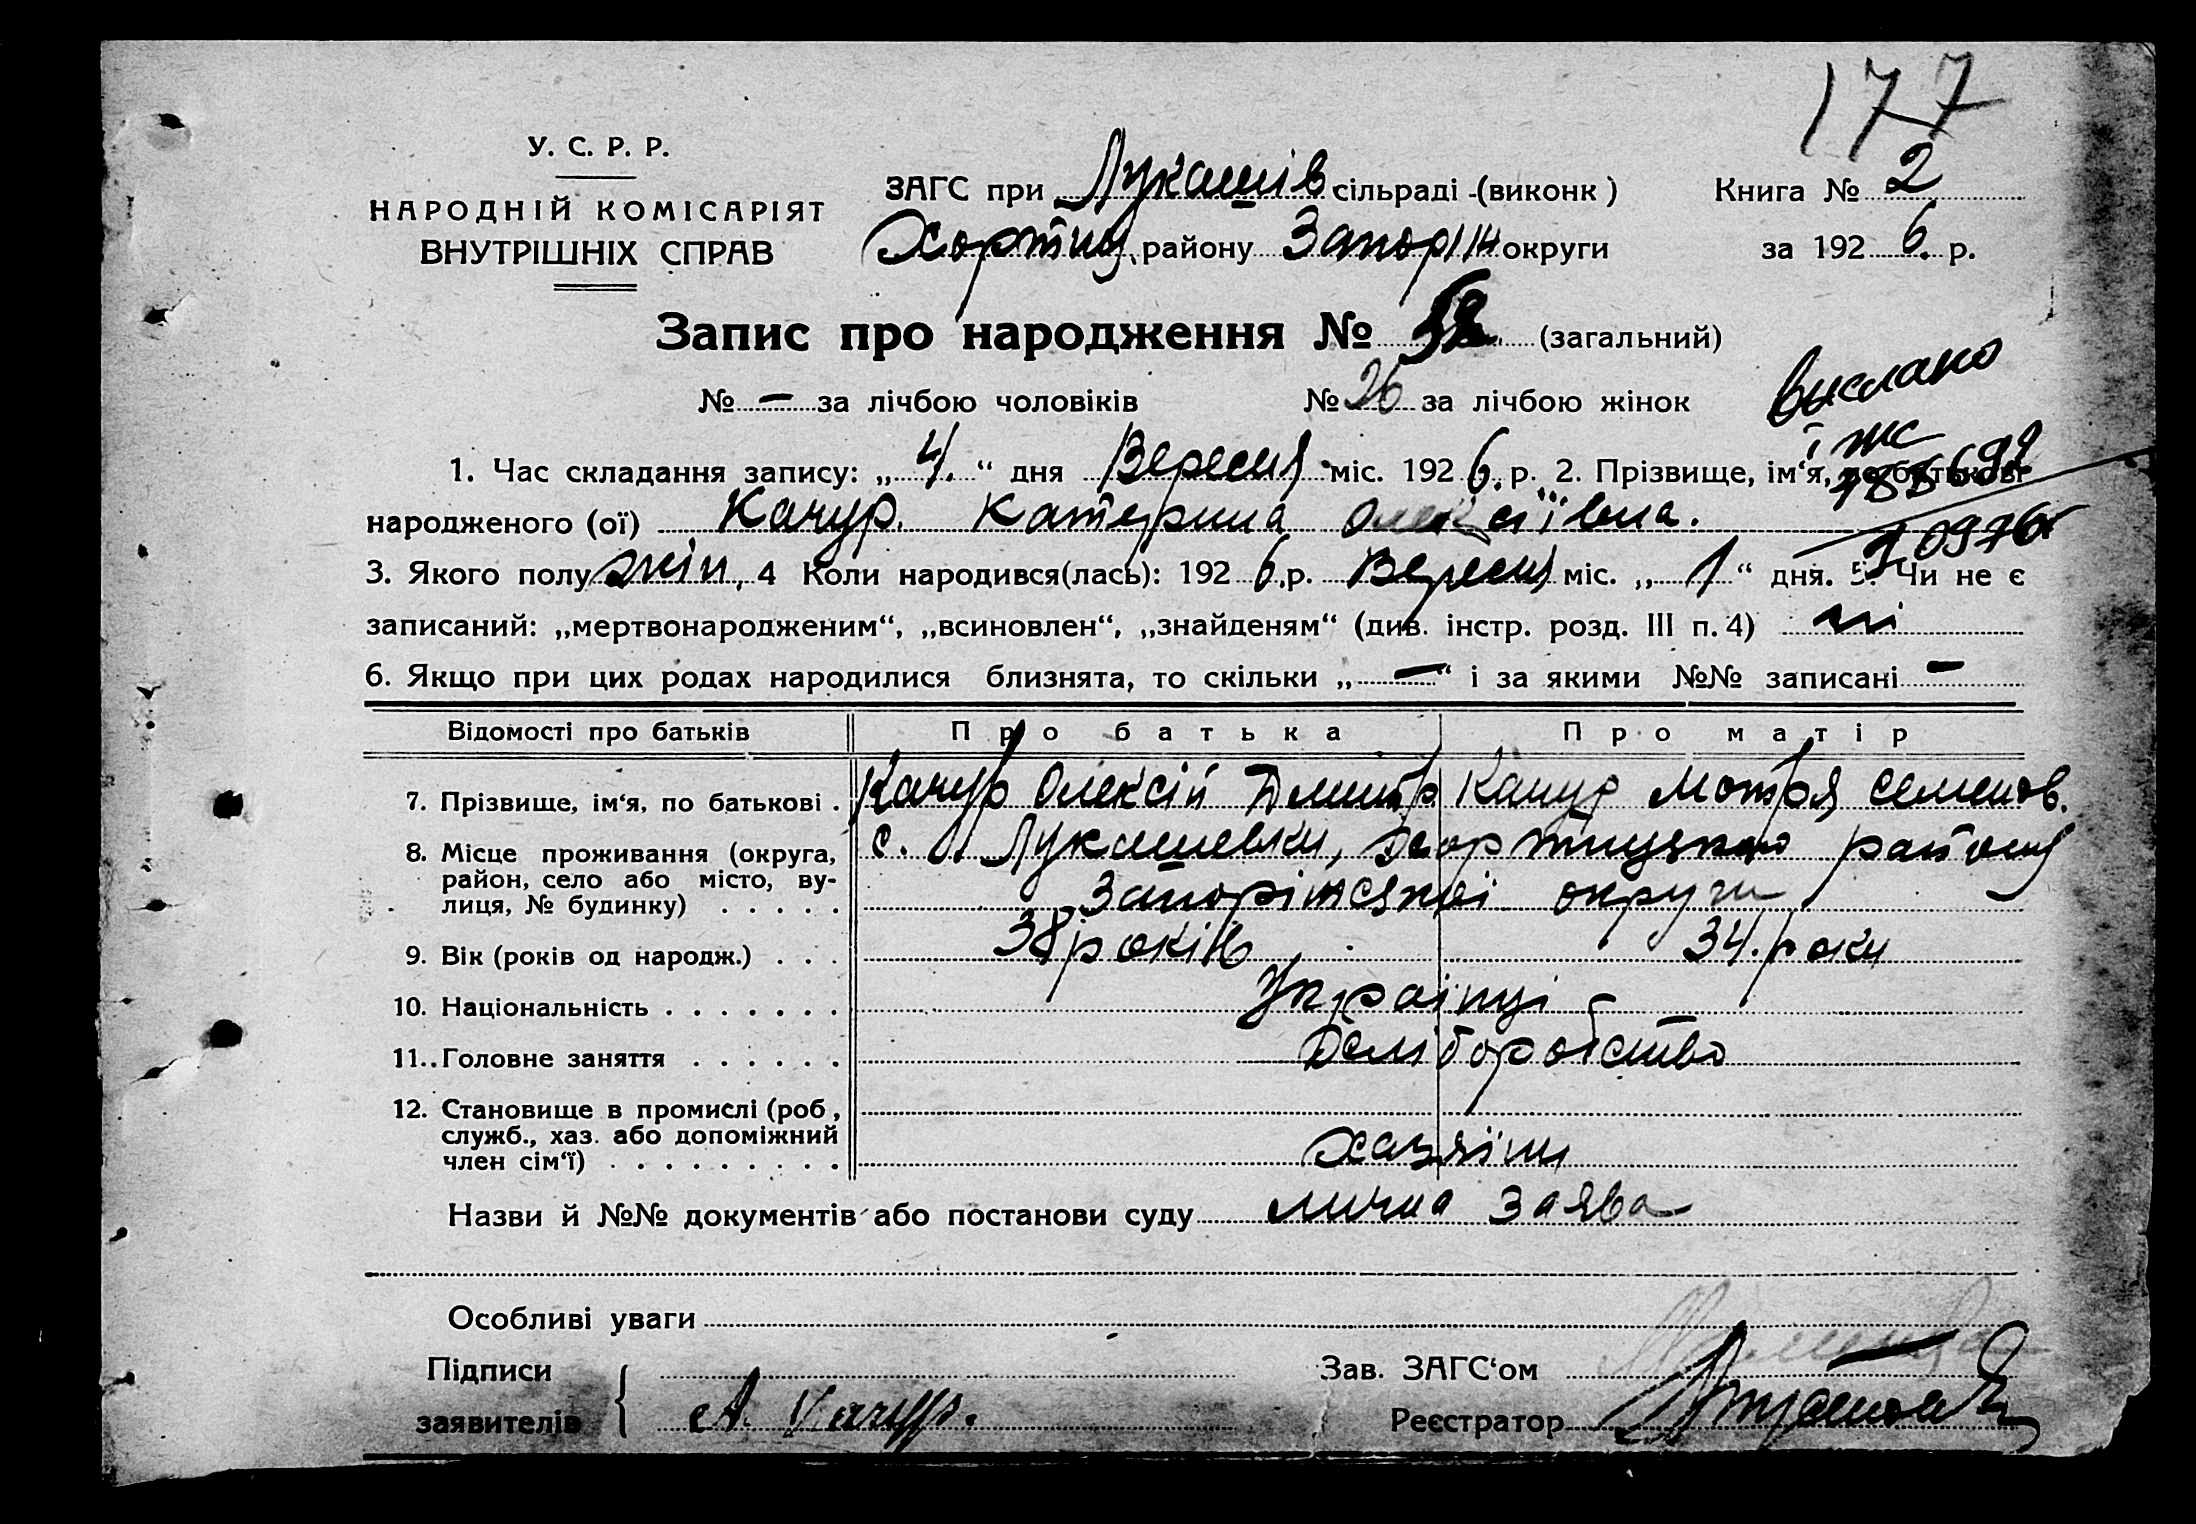 177
У. С. Р. Р.
НАРОДНІЙ КОМІСАРІЯТ
ВНУТРІШНІХ СПРАВ
ЗАГС при Лукашів сільраді -(виконк )
Хортиц. району Запоріж округи
Книга № 2
за 192 6. р.
Запис про народження № 52 (загальний)
№ — за лічбою чоловіків № 26 за лічбою жінок
выслано
1. Час складання запису: „ 4. “ дня Вересня міс. 192 6. р. 2. Прізвище, ім‘я, по батькові
народженого (ої) Качур. Катерина Олексіївна.
3. Якого полу жін. 4 Коли народився(лась): 192 6. р. Вересня міс. „ 1 “ дня. 5. Чи не є
записаний: „мертвонародженим“, „всиновлен“, „знайденям“ (див. інстр. розд. III п. 4) ні
6. Якщо при цих родах народилися близнята, то скільки „ — “ і за якими №№ записані —
Відомості про батьків Про батька Про матір
7. Прізвище, ім‘я, по батькові . Качур Олексій Дмитр. Качур Мотря Семенов.
8. Місце проживання (округа, с. Лукашевки, Хортицького району
район, село або місто, ву-
лиця, № будинку) . . . . . Запоріжської округи
9. Вік (років од народж.) . . . 38 років 34. роки
10. Національність . . . . . . . Українці
11. Головне заняття . . . . . . Хліборобство
12. Становище в промислі (роб.,
служб., хаз. або допоміжний
член сім‘ї) . . . . . . . . . хазяїни
Назви й №№ документів або постанови суду лична заява
Особливі уваги
Підписи
заявителів А. Качур.
Зав. ЗАГС‘ом
Реєстратор